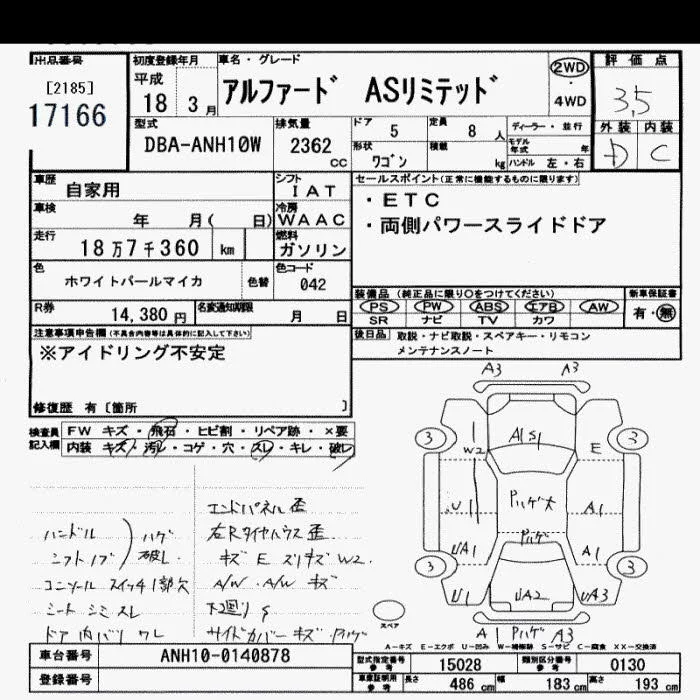 出品番号
[2185]
17166
初度登録年月
平成
18 3月
車名・グレード
アルファード ASリミテッド
2WD
・
4WD
評価点
3,5
外装 内装
D C
型式
DBA-ANH10W
排気量
2362
cc
ドア
5
定員
8 人
ディーラー・並行
モデル年式 年
形状
ワゴン
積載
kg
ハンドル 左・右
車歴
自家用
シフト
IAT
車検
年 月( 日)
冷房
WAAC
走行
18万7千360 km
燃料
ガソリン
色
ホワイトパールマイカ
色替
色コード
042
R券
14,380 円
名変通知期限
月 日
セールスポイント(正常に機能するものに限ります)
・ETC
・両側パワースライドドア
装備品 (純正品に限り○をつけてください)
PS PW ABS エアB AW
SR ナビ TV カワ
新車保証書
有・無
後日品
取説・ナビ取説・スペアキー・リモコン
メンテナンスノート
注意事項申告欄(不具合内容等は具体的に記入して下さい)
※アイドリング不安定
修復歴 有〔箇所 〕
検査員
記入欄
FW キズ・飛石・ヒビ割・リペア跡・×要
内装 キズ・汚レ・コゲ・穴・スレ・キレ・破レ
ハンドル
シフトノブ
ハゲ
破レ
コンソール スイッチ1部欠
シート シミ スレ
ドア内バリ ワレ
エンドパネル歪
右Rタイヤハウス歪
キズ E スリキズ W2.
A/W . A/W キズ
下廻り S
サイドカバー キズ
A3 A3
3 3
A1S1
W2 E
U
Pハゲ大
A1
Pハゲ
UA1 A1
3 3
U1 UA2 UA3
スペア
A Pハゲ A3
A－キズ E－エクボ U－凹み W－補修跡 S－サビ C－腐食 XX－交換済
車台番号
ANH10-0140878
登録番号
型式指定番号
参考
15028
類別区分番号
参考
0130
車庫証明用
参考
長さ
486 cm
幅
183 cm
高さ
193 cm